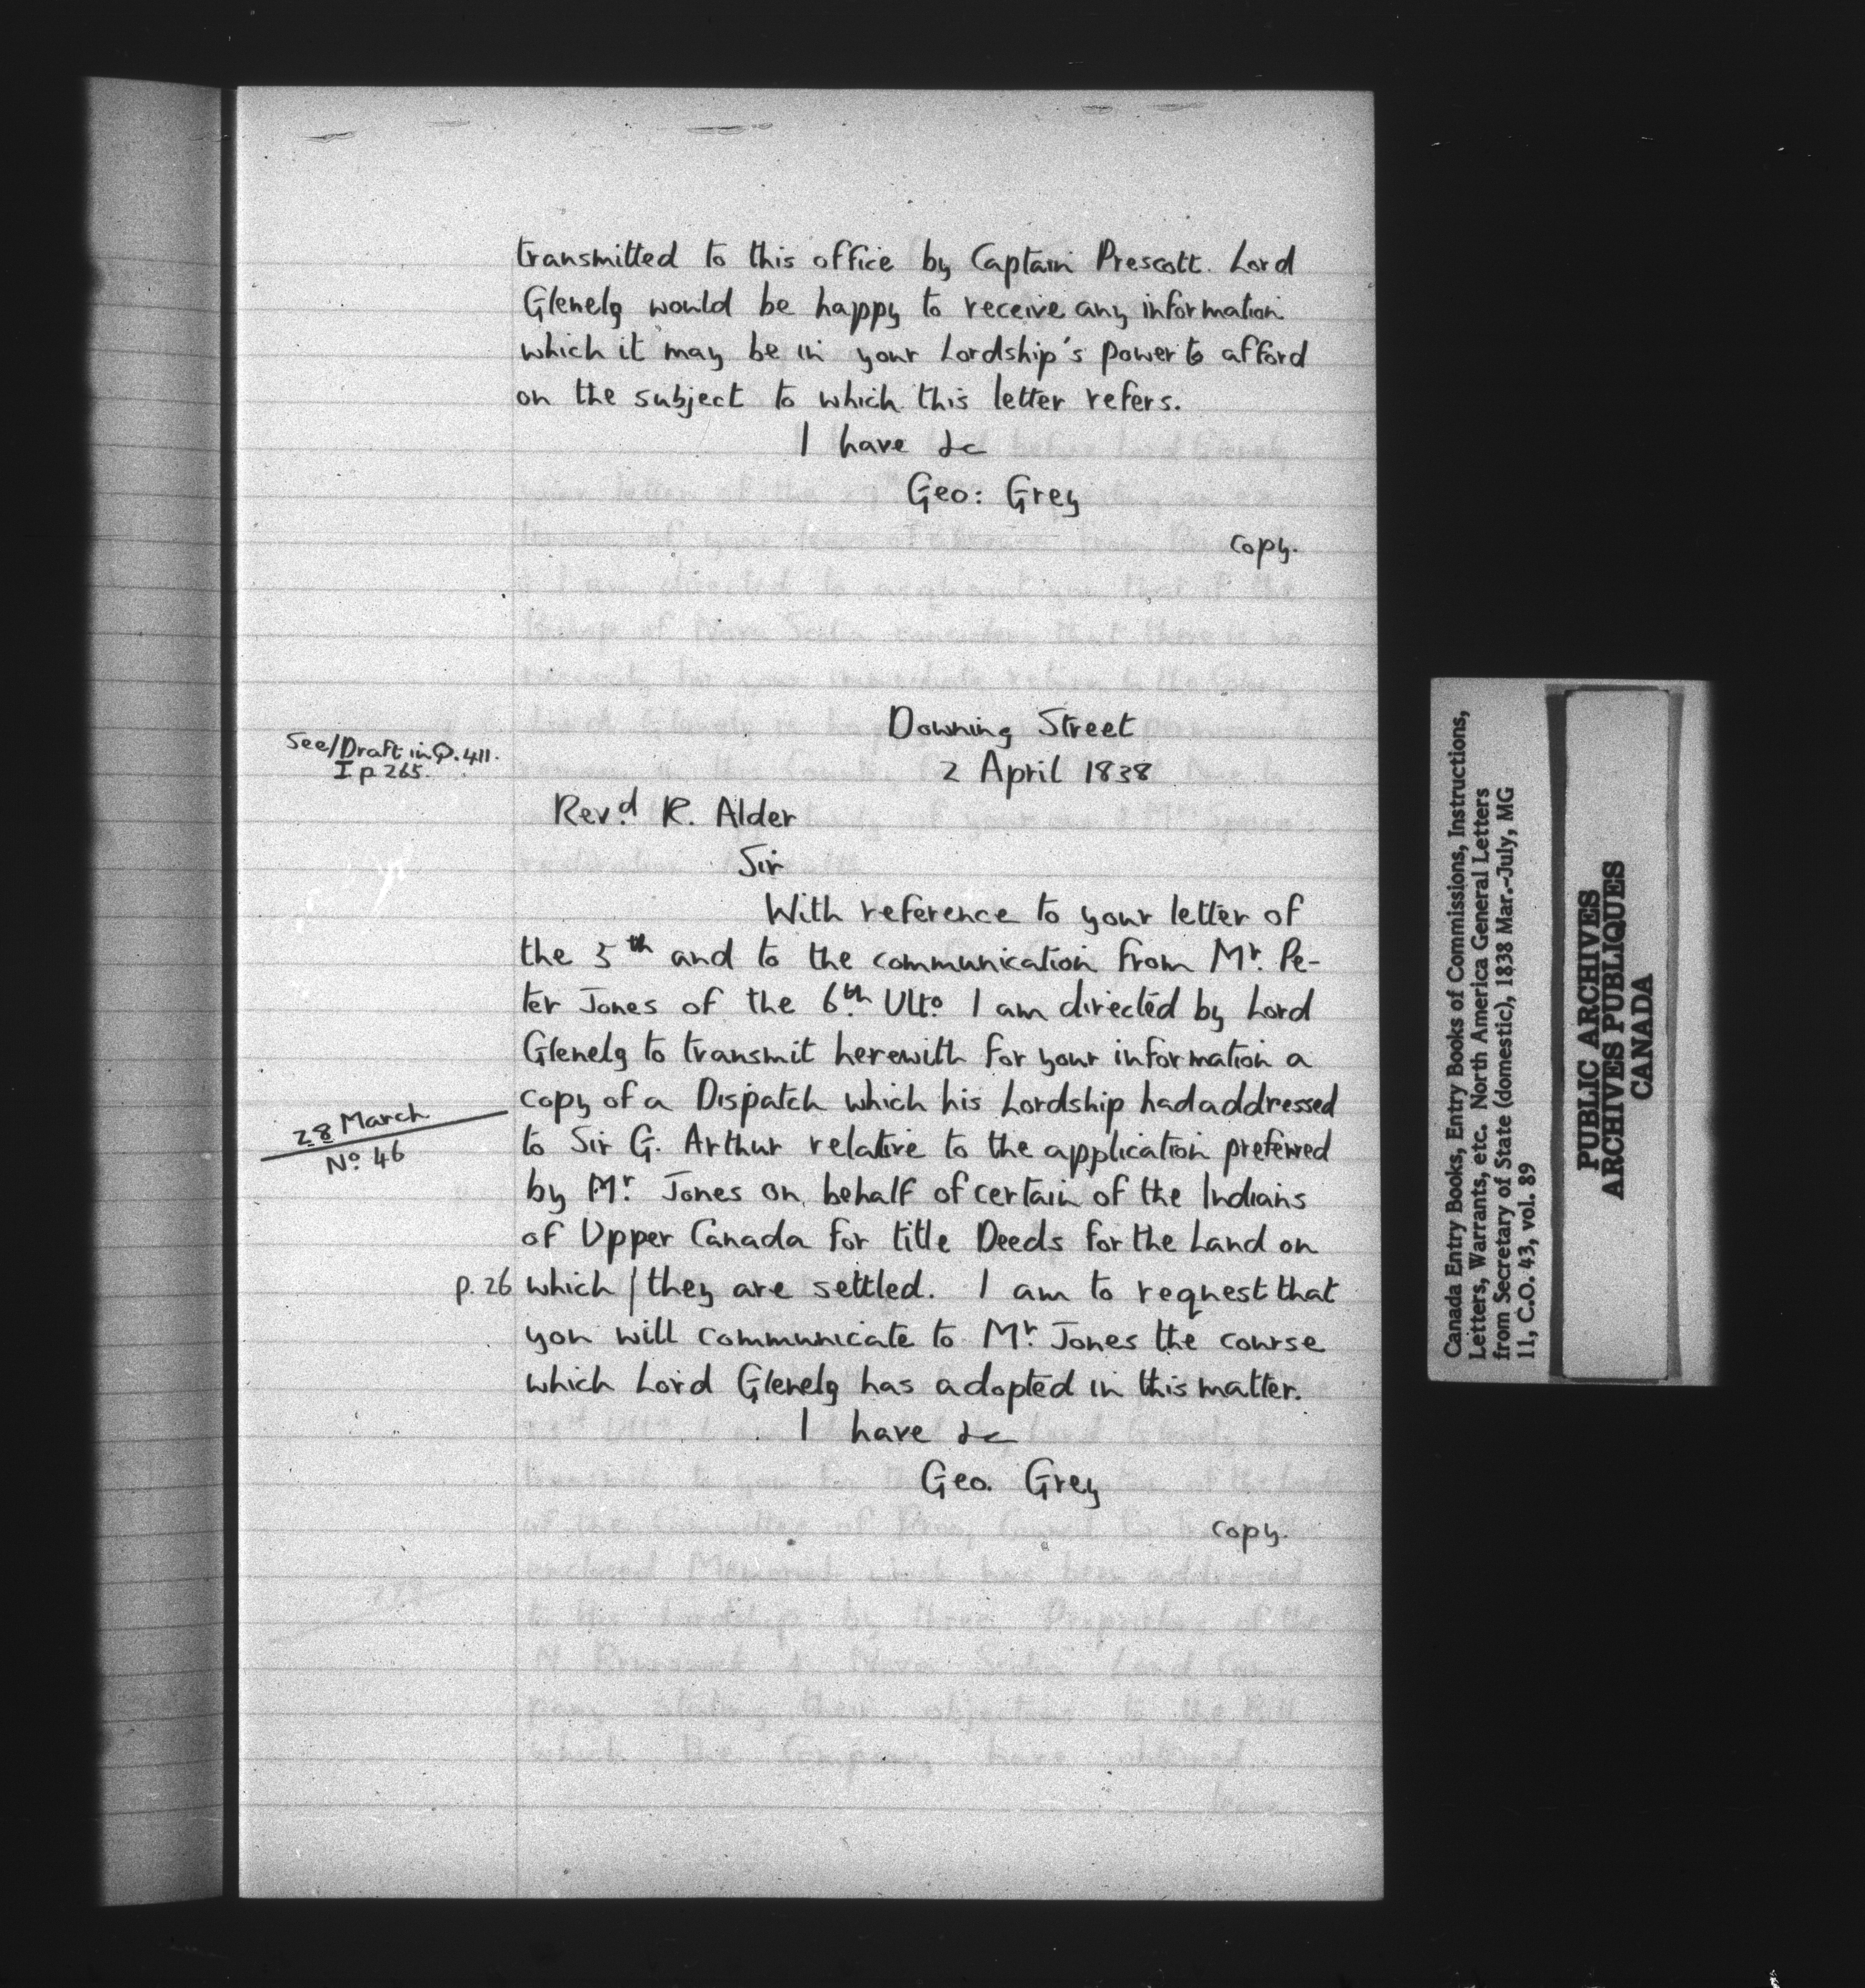 transmitted to this office by Captain Prescott. Lord
Glenelg would be happy to receive any information
which it may be in your Lordship's power to afford
on the subject to which this letter refers.
I have &c
Geo: Grey
copy.
Downing Street
2 April 1838
See/Draft in Q. 411.
I p 265.
Revd R. Alder
Sir
With reference to your letter of
the 5th and to the communication from Mr. Pe-
ter Jones of the 6th Ulto I am directed by Lord
Glenelg to transmit herewith for your information a
copy of a Dispatch which his Lordship had addressed
28 March
No 46
to Sir G. Arthur relative to the application preferred
by Mr. Jones on behalf of certain of the Indians
of Upper Canada for title Deeds for the Land on
p. 26 which / they are settled. I am to request that
you will communicate to Mr. Jones the course
which Lord Glenelg has adopted in this matter.
I have &c
Geo. Grey
copy.
Canada Entry Books, Entry Books of Commissions, Instructions,
Letters, Warrants, etc. North America General Letters
from Secretary of State (domestic), 1838 Mar.-July, MG
11, C.O. 43, vol. 89
PUBLIC ARCHIVES
ARCHIVES PUBLIQUES
CANADA